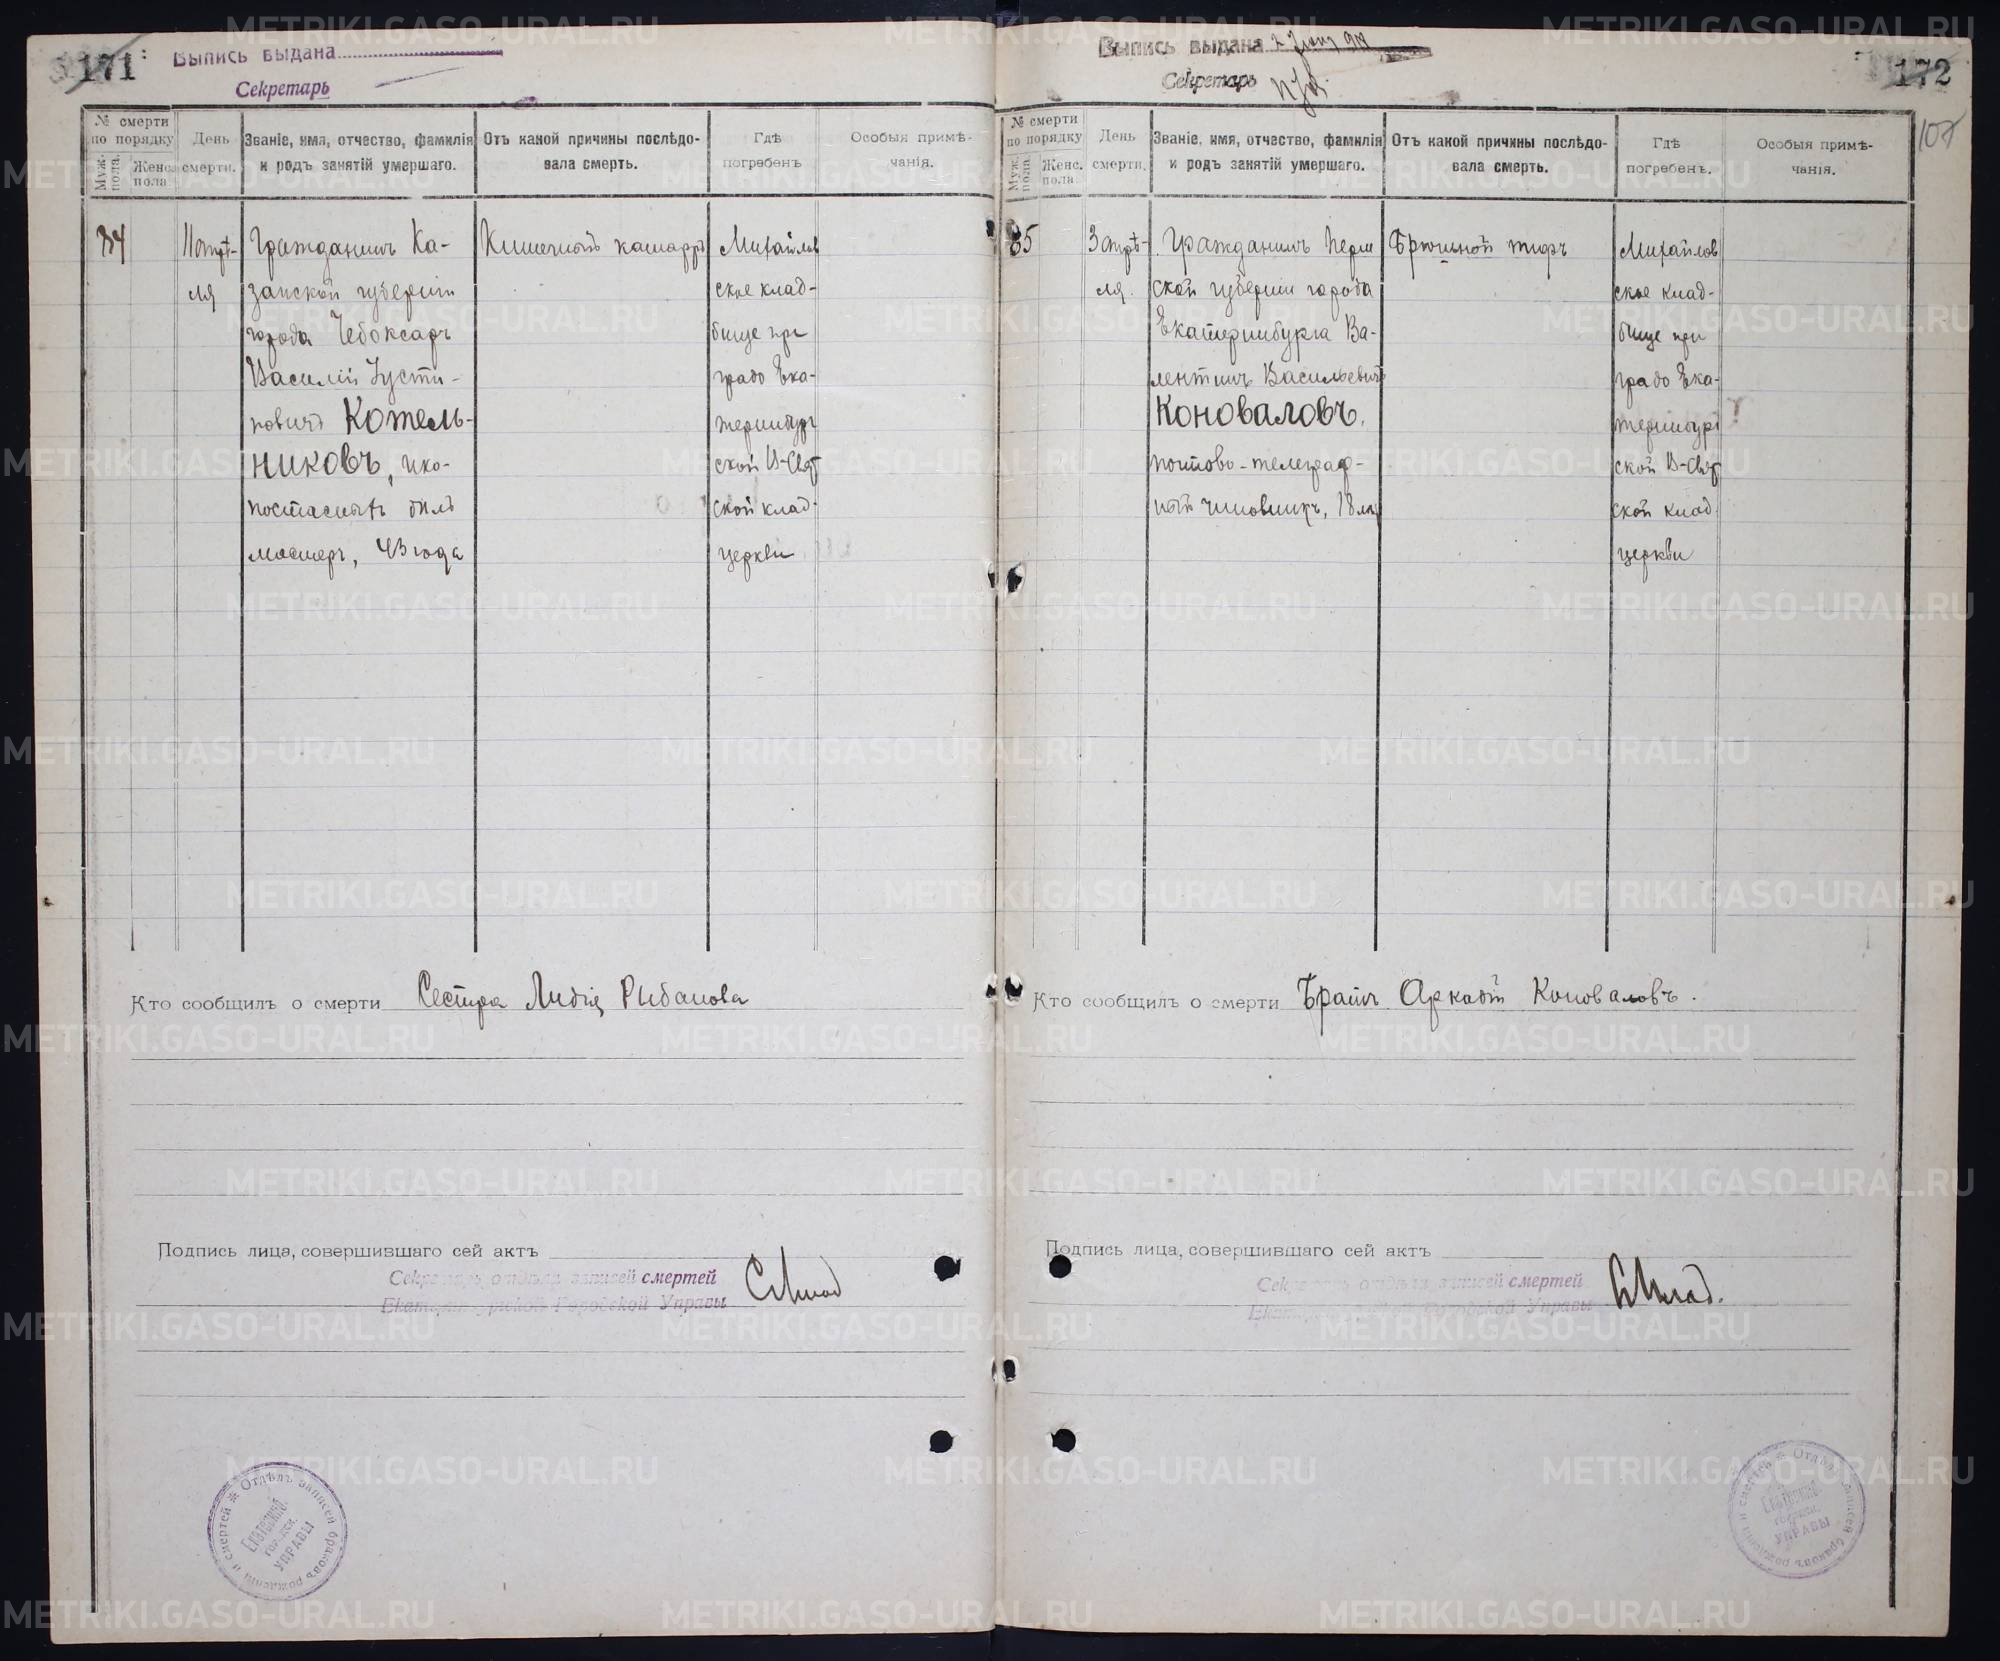 171
Выпись выдана
Секретарь
№ смерти по порядку
Муж. пола.
Женс. пола
День смерти.
Званіе, имя, отчество, фамилія и родъ занятій умершаго.
Отъ какой причины послѣдовала смерть.
Гдѣ погребенъ
Особыя примѣчанія.
34
Гражданинъ Ка-
занской губерніи
города Чебоксаръ
Василій Густи-
новичъ Котель-
никовъ, ико-
мастеръ, 43 года
Кишечный катарръ
Михайлов
ское клад-
бище при
градо Ека-
теринбург
ской В-Свят
ской клад.
церкви
Кто сообщилъ о смерти Сестра Лидія Рыбанова
Подпись лица, совершившаго сей актъ
Секретарь отдѣла записей смертей
Екатеринбургской Городской Управы
Отдѣлъ записей браковъ рожденій и смертей
УПРАВЫ
Выпись выдана
Секретарь
172
107
№ смерти по порядку
Муж. пола.
Женс. пола.
День смерти.
Званіе, имя, отчество, фамилія и родъ занятій умершаго.
Отъ какой причины послѣдовала смерть.
Гдѣ погребенъ.
Особыя примѣчанія.
35
3 апрѣ-
ля.
Гражданинъ Перм
ской губерніи города
Екатеринбурга Ва-
лентинъ Васильевичъ
Коноваловъ,
почтово-телеграф-
ный чиновникъ, 18 лѣт
Брюшной тифъ
Михайлов
ское клад-
бище при
градо Ека-
теринбург
ской В-Свят
ской клад.
церкви
Кто сообщилъ о смерти Братъ Аркадій Коноваловъ.
Подпись лица, совершившаго сей актъ
Секретарь отдѣла записей смертей
Екатеринбургской Городской Управы
Отдѣлъ записей браковъ рожденій и смертей
УПРАВЫ
METRIKI.GASO-URAL.RU